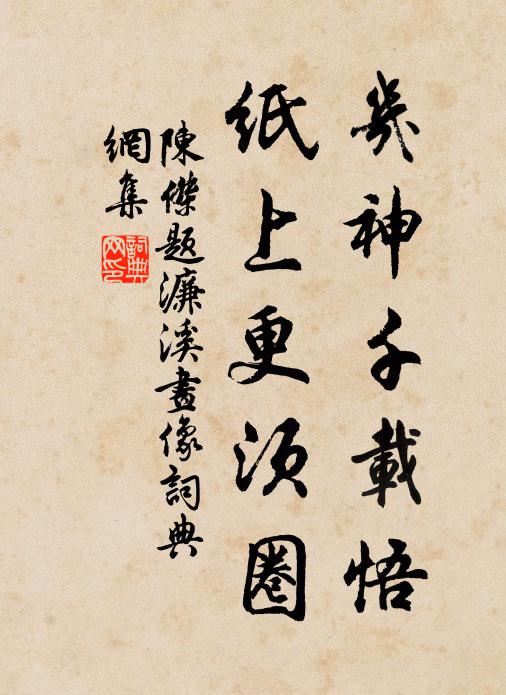 幾神千載悟
紙上更須圈
陳傑題濂溪畫像詞典
網集
詞典
网印